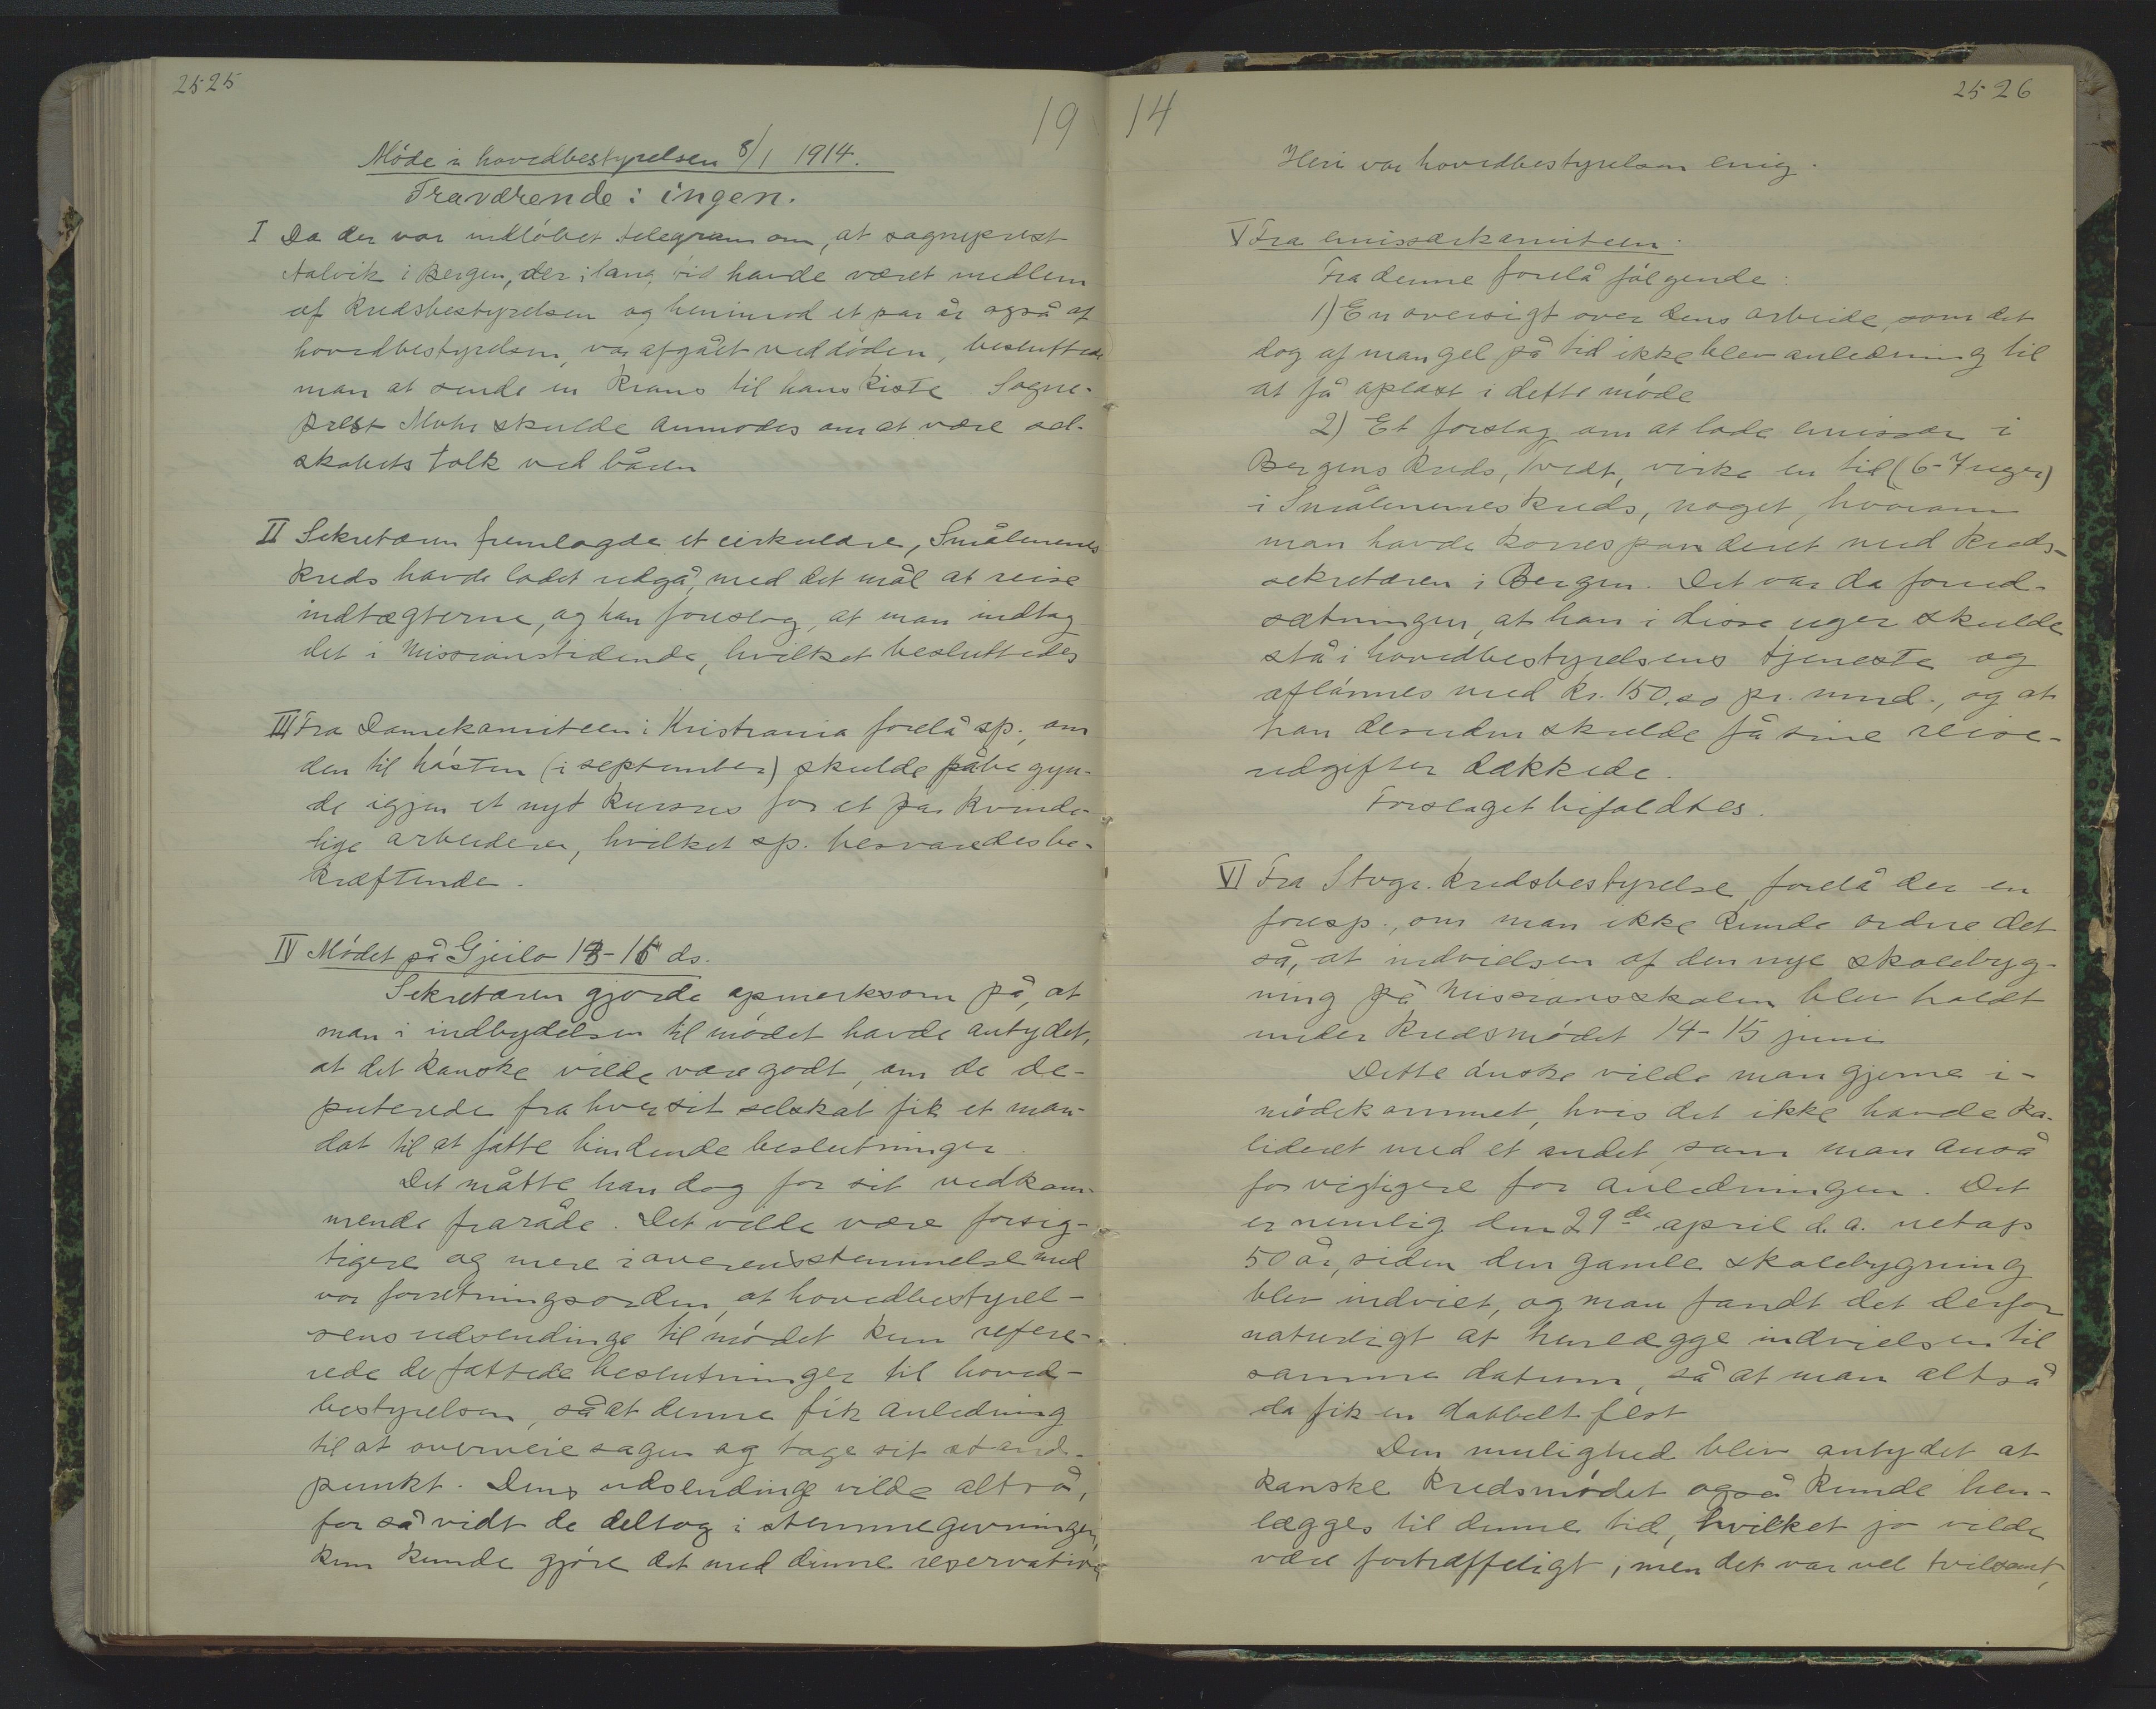 2525
19
Møde i hovedbestyrelsen 8/1 1914.
Fraværende: ingen.
I Da der var indløbet telegram om, at sogneprest
Aalvik i Bergen, der i lang tid havde været medlem
af kredsbestyrelsen og henimod et par år også af
hovedbestyrelsen, var afgået ved døden, besluttede
man at sende en krans til hans kiste Sogne-
prest Mohr skulde anmodes om at være sel-
skabets tolk ved båren
II Sekretæren fremlagde et cirkulære, Smålenenes
kreds havde ladet udgå, med det mål at reise
indtægterne, og han foreslog, at man indtog
det i Missionstidende, hvilket besluttedes
III Fra Damekomiteen i Kristiania forelå sp., om
den til høsten (i september) skulde påbegyn-
de igjen et nyt kursus for et par kvinde-
lige arbeidere, hvilket sp. besvaredes be-
kræftende.
IV Mødet på Gjeilo 13-15 ds.
Sekretæren gjorde opmerksom på, at
man i indbydelsen til mødet havde antydet,
at det kanske vilde være godt, om de de-
puterede fra hver sit selskab fik et man-
dat til at fatte bindende beslutninger.
Det måtte han dog for sit vedkom-
mende fraråde. Det vilde være forsig-
tigere og mere i overensstemmelse med
vor forretningsorden, at hovedbestyrel-
sens udsendinge til mødet kun refere-
rede de fattede beslutninger til hoved-
bestyrelsen, så at denne fik anledning
til at overveie sagen og tage sit stand-
punkt. Dens udsendinge vilde altså,
for så vidt de deltog i stemmegivningen,
kun kunde gjøre det med denne reservation
14
2526
Heri var hovedbestyrelsen enig.
V Fra emissærkomiteen.
Fra denne forelå følgende:
1) En oversigt over dens arbeide, som det
dog af mangel på tid ikke blev anledning til
at få oplæst i dette møde
2) Et forslag om at lade emissær i
Bergens kreds, Tvedt, virke en tid (6-7 uger)
i Smålenenes kreds, noget, hvorom
man havde korresponderet med kreds-
sekretæren i Bergen. Det var da forud-
sætningen, at han i disse uger skulde
stå i hovedbestyrelsens tjeneste og
aflønnes med kr. 150.00 pr. mnd., og at
han desuden skulde få sine reise-
udgifter dækkede.
Forslaget bifaldtes.
VI Fra Stvgr. kredsbestyrelse forelå der en
foresp., om man ikke kunde ordne det
så, at indvielsen af den nye skolebyg-
ning på Missionsskolen blev holdt
under kredsmødet 14-15 juni
Dette ønske vilde man gjerne i-
mødekommet, hvis det ikke havde ko-
lideret med et andet, som man anså
for vigtigere for anledningen. Det
er nemlig den 29de april d. a. netop
50 år, siden den gamle skolebygning
blev indviet, og man fandt det derfor
naturligt at henlægge indvielsen til
samme datum, så at man altså
da fik en dobbelt fest
Den mulighed blev antydet at
kanske kredsmødet også kunde hen-
lægges til denne tid, hvilket jo vilde
være fortræffeligt; men det var vel tvilsomt,